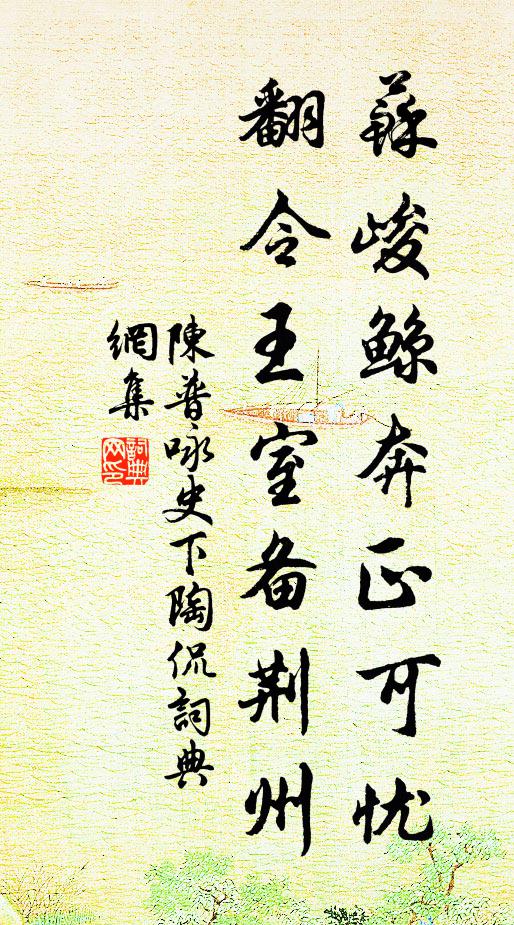 蘇峻鯨奔正可忧
翻令王室备荆州
陳普咏史下陶侃詞典
網集
詞典
网印